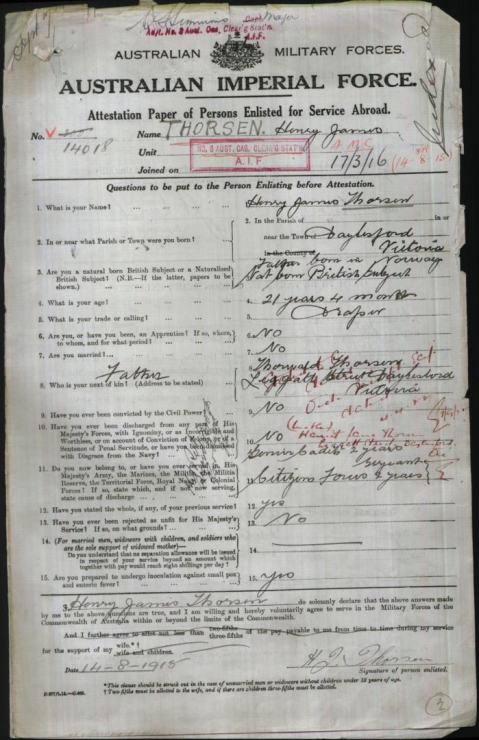 Major
Adjt. No. 2 Aust. Cas. Clear'g Stat'n
A.I.F.
AUSTRALIAN MILITARY FORCES.
AUSTRALIAN IMPERIAL FORCE.
Attestation Paper of Persons Enlisted for Service Abroad.
No. 14018 Name THORSEN. Henry James
Unit NO. 2 AUST. CAS. CLEARING STAT'N A.I.F. A.M.C.
Joined on 17/3/16 (14-8-15)
Questions to be put to the Person Enlisting before Attestation.
1. What is your Name? ... Henry James Thorsen
2. In or near what Parish or Town were you born? ... 2. In the Parish of in or
near the Town of Daylesford
In the County of Victoria
Father born in Norway
3. Are you a natural born British Subject or a Naturalized British Subject? (N.B.—If the latter, papers to be shown.) Nat born British Subject
4. What is your age? ... 4. 21 years 4 months
5. What is your trade or calling? ... 5. Draper
6. Are you, or have you been, an Apprentice? If so, where, to whom, and for what period? 6. No
7. Are you married? ... 7. No
8. Who is your next of kin? (Address to be stated) Father 8. Thorwald Thorsen
Street Daylesford
Victoria
9. Have you ever been convicted by the Civil Power? 9. No
10. Have you ever been discharged from any part of His Majesty's Forces, with Ignominy, or as Incorrigible and Worthless, or on account of Conviction of Felony, or of a Sentence of Penal Servitude, or have you been dismissed with Disgrace from the Navy? 10. No
11. Do you now belong to, or have you ever served in, His Majesty's Army, the Marines, the Militia, the Militia Reserve, the Territorial Force, Royal Navy or Colonial Forces? If so, state which, and if not now serving, state cause of discharge Senior Cadets 2 years
Sergeant
11. Citizens Forces 2 years
12. Have you stated the whole, if any, of your previous service? 12. Yes
13. Have you ever been rejected as unfit for His Majesty's Service? If so, on what grounds? ... 13. No
14. (For married men, widowers with children, and soldiers who are the sole support of widowed mother)—
Do you understand that no separation allowance will be issued in respect of your service beyond an amount which together with pay would reach eight shillings per day? 14.
15. Are you prepared to undergo inoculation against small pox and enteric fever? ... 15. Yes
I, Henry James Thorsen do solemnly declare that the above answers made
by me to the above questions are true, and I am willing and hereby voluntarily agree to serve in the Military Forces of the
Commonwealth of Australia within or beyond the limits of the Commonwealth.
And I further agree to allot not less than two-fifths three-fifths of the pay payable to me from time to time during my service
for the support of my wife.* wife and children.
Date 14-8-1915 H. J. Thorsen
Signature of person enlisted.
*This clause should be struck out in the case of unmarried men or widowers without children under 18 years of age.
†Two-fifths must be allotted to the wife, and if there are children three-fifths must be allotted.